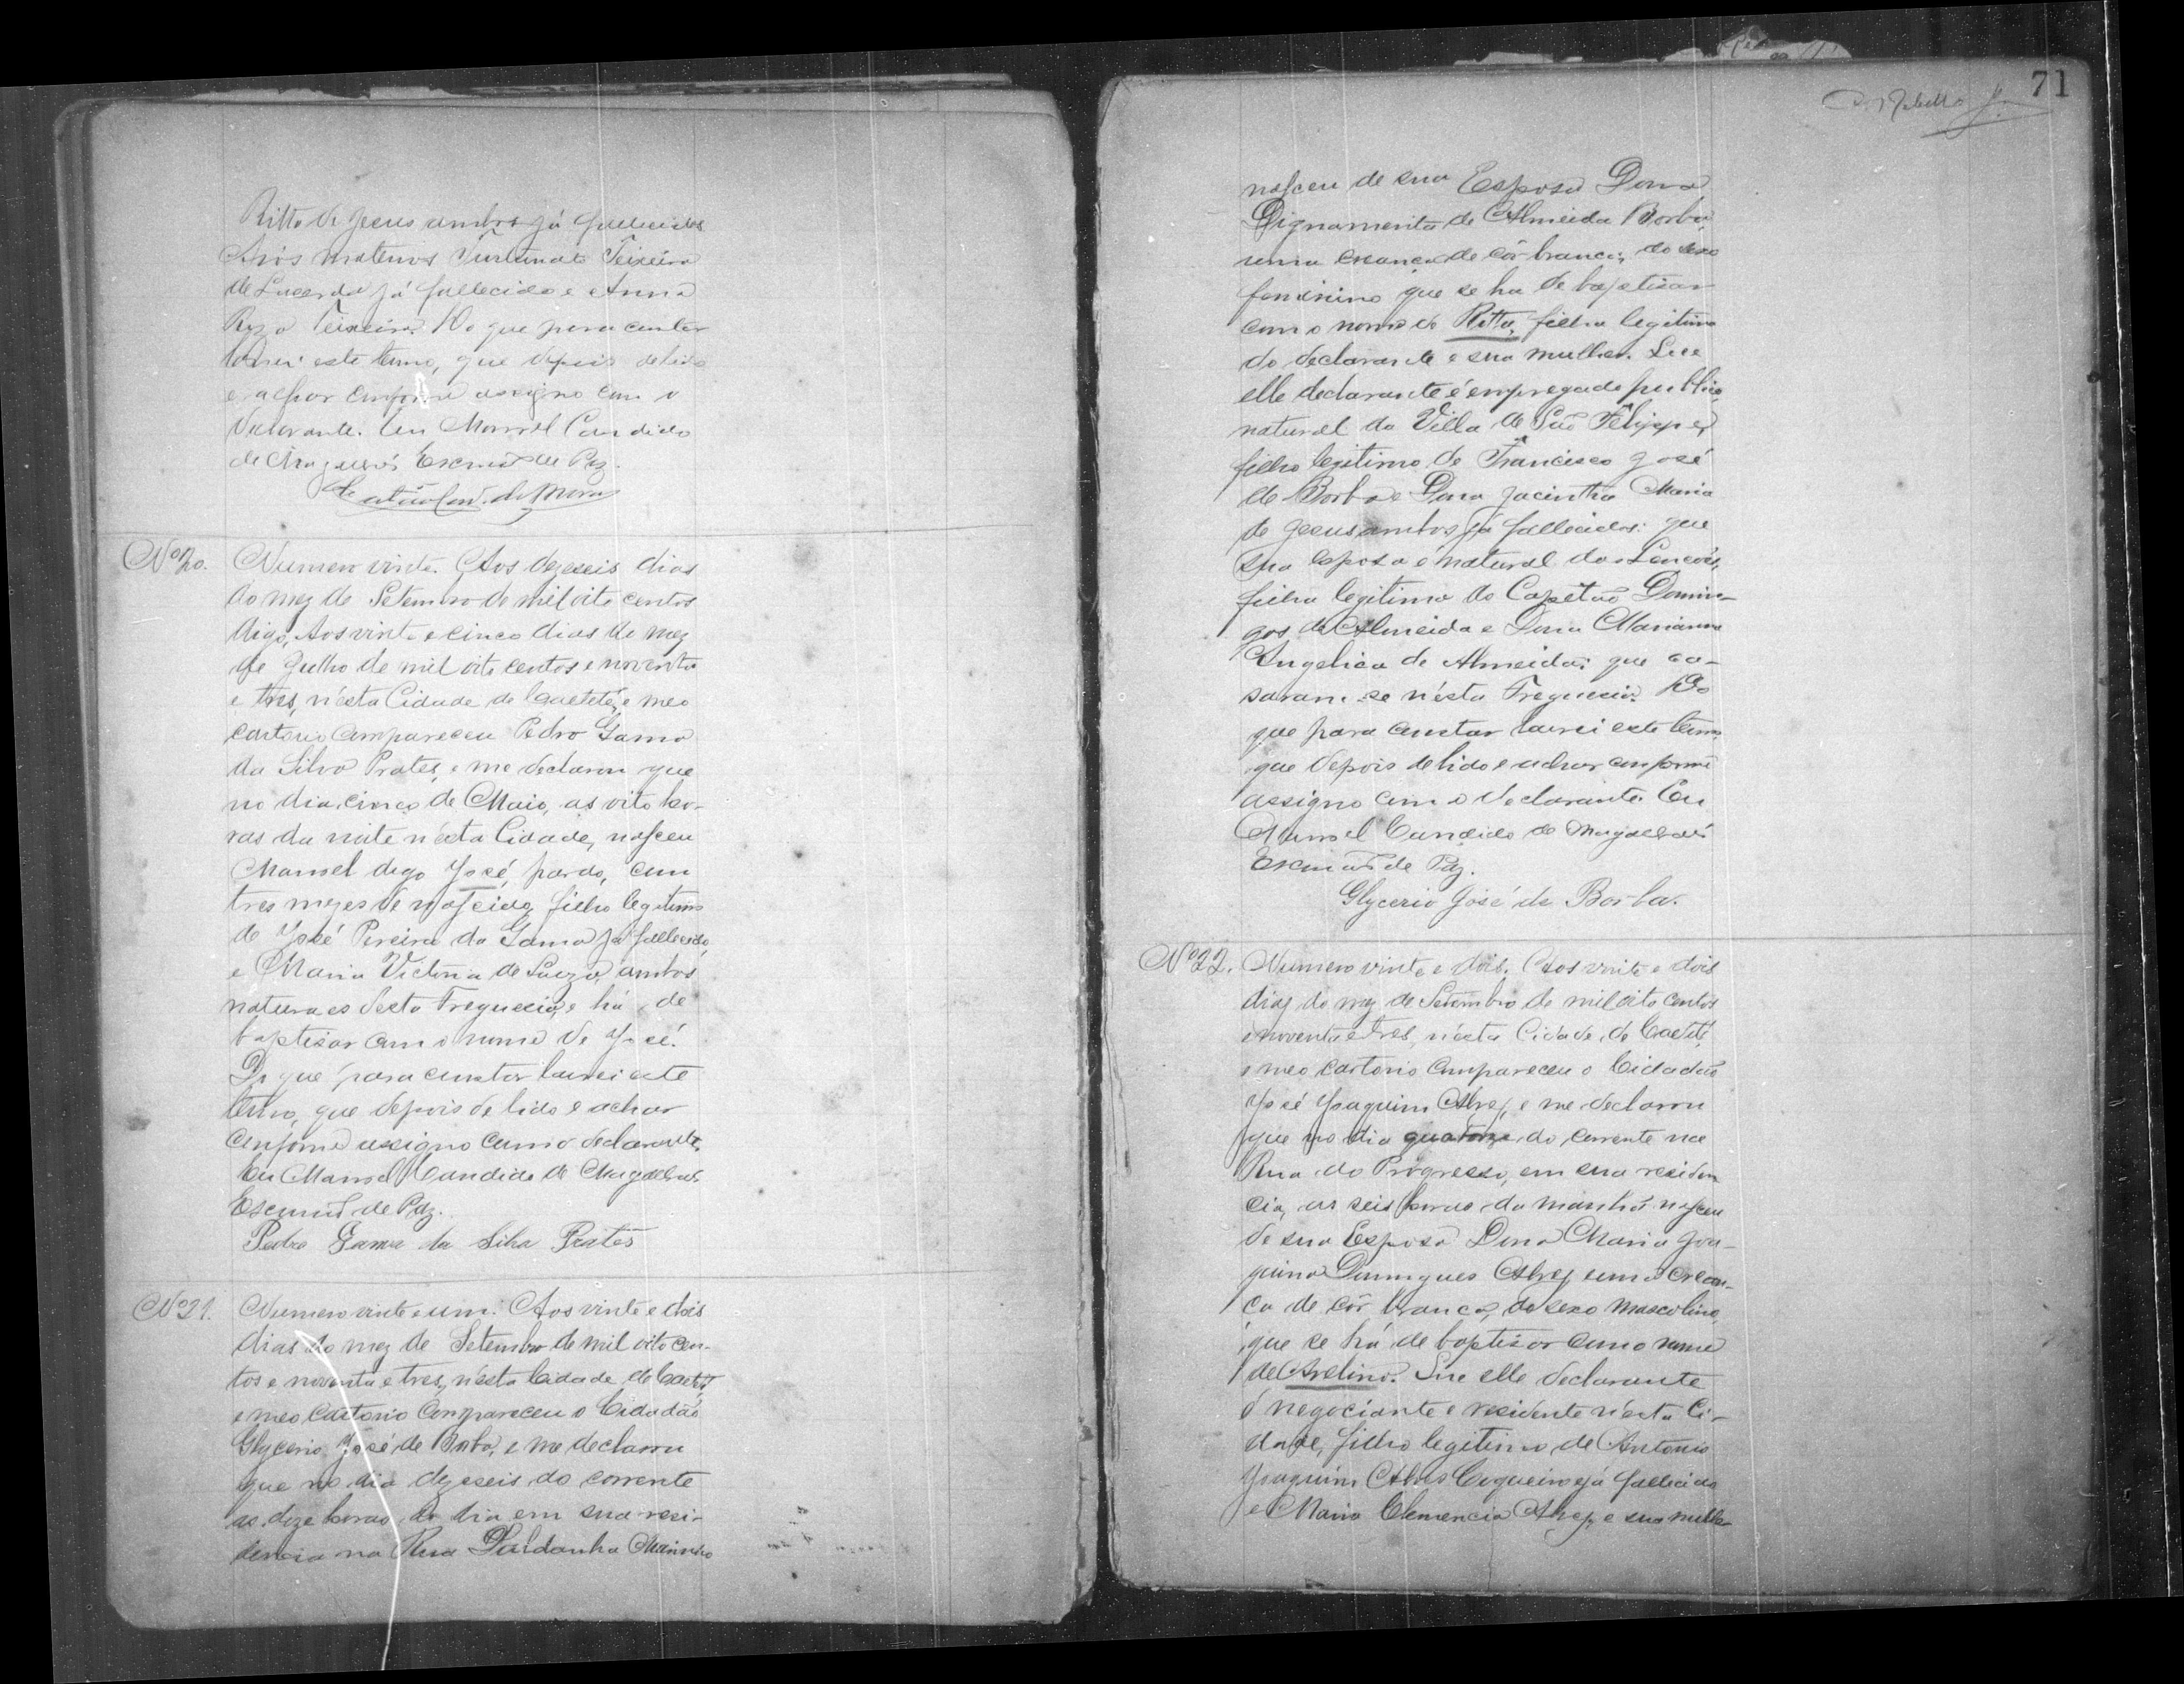 Ritta de Jesus ambos já fallecidos
Avós maternos Furtunato Teixeira
de Lacerda já fallecido e Anna
Roza Teixeira. Do que para constar
lavrei este termo, que depois de lido
e achar conforme assigno com o
declarante. Eu Manoel Candido
de Magalhães Escrivão de Paz.
No 20.
Numero vinte. Aos dezeseis dias
do mez de Setembro de mil oito centos
digo, Aos vinte e cinco dias do mez
de Julho de mil oito centos e noventa
e tres, n'ésta Cidade de Caeteté, e meo
cartorio compareceu Pedro Gama
da Silva Prates, e me declarou que
no dia cinco de Maio, as oito ho-
ras da noite n'ésta Cidade, nasceu
Manoel digo José, pardo, com
tres mezes de nascido, filho legitimo
de José Pereira da Gama já fallecido,
e Maria Victoria de Souza, ambos
naturaes desta Freguecia, e há de
baptisar com o nome de José.
Do que para constar lavrei este
termo, que depois de lido e achar
conforme assigno com o declarante.
Eu Manoel Candido de Magalhães
Escrivão de Paz.
Pedro Gama da Silva Prates
No 21.
Numero vinte e um. Aos vinte e dois
dias do mez de Setembro de mil oito cen-
tos e noventa e tres, n'ésta Cidade de Caeteté
e meo Cartorio Compareceu o Cidadão
Glycerio José de Borba, e me declarou
que no dia dezeseis do corrente
as doze horas do dia em sua resi-
dencia na Rua Saldanha Marinho
71
nasceu de sua Esposa Dona
Dignamerita de Almeida Borba,
uma creança de côr branca, do sexo
feminino que se ha de baptisar
com o nome de Ritta, filha legitima
do declarante e sua mulher. Que
elle declarante é empregado publico,
natural da Villa de São Felippe,
filho legitimo de Francisco José
de Borba e Dona Jacintha Maria
de Jesus ambos já fallecidos: que
sua esposa é natural dos Lençóes,
filha legitima do Capitão Domin-
gos de Almeida e Dona Marianna
Angelica de Almeida; que ca-
saram-se n'ésta Freguecia. Do
que para constar lavrei este termo
que depois de lido e achar conforme
assigno com o declarante. Eu
Manoel Candido de Magalhães
Escrivão de Paz.
Glycerio José de Borba.
No 22.
Numero vinte e dois. Aos vinte e dois
dias do mez de Setembro de mil oito centos
e noventa e tres, n'ésta Cidade de Caeteté,
e meo cartorio compareceu o Cidadão
José Joaquim Alves, e me declarou
que no dia quatorze do corrente na
Rua do Progresso, em sua residen
cia, as seis horas da manhã nasceu
de sua Esposa Dona Maria Joa-
quina Domingues Alves uma crean-
ça de côr branca, do sexo masculino,
que se há de baptisar com o nome
de Avelino. Que elle declarante
é negociante e residente n'ésta Ci-
dade, filho legitimo de Antonio
Joaquim Alves Cerqueira já fallecido
e Maria Clemencia Alves, e sua mulher